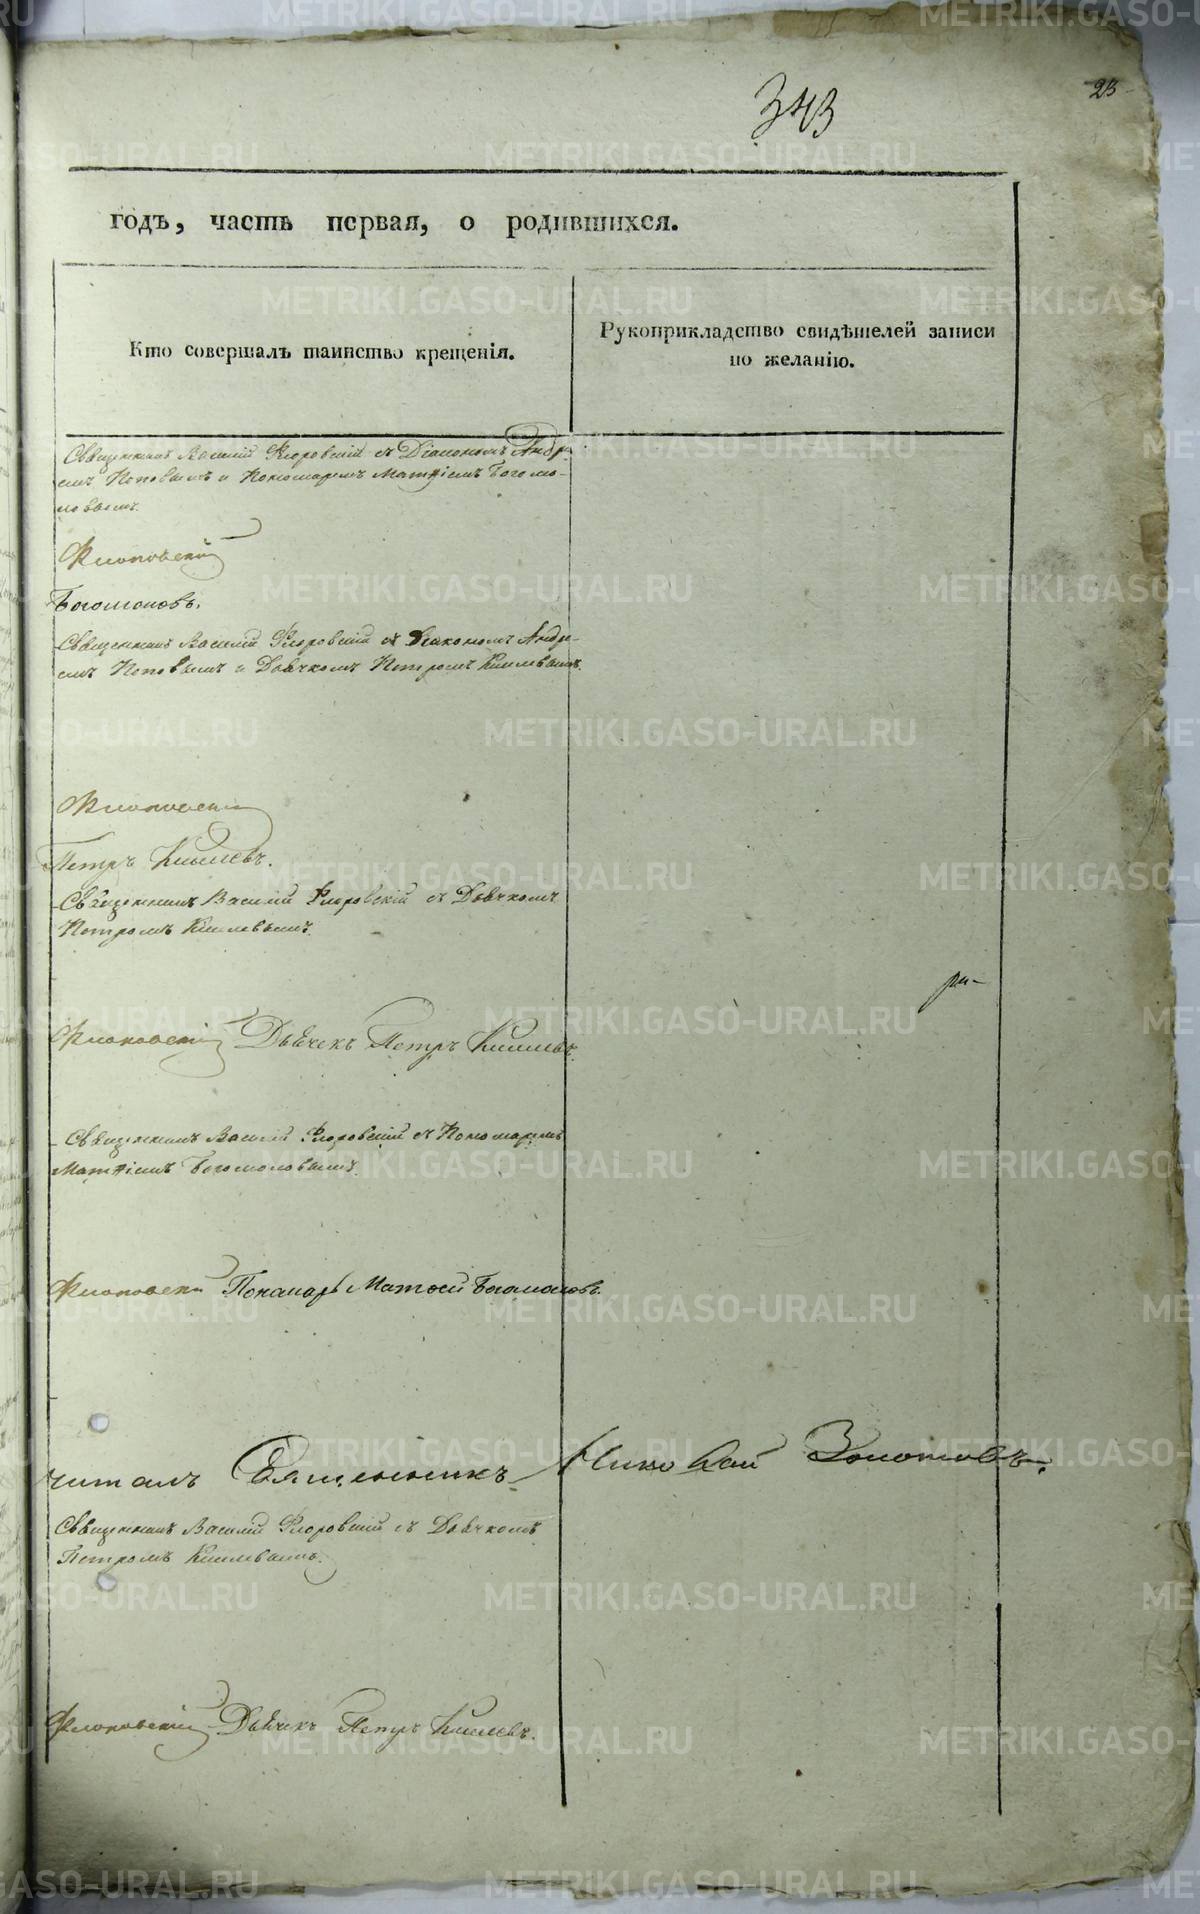 23
343
годъ, часть первая, о родившихся.
Кто совершалъ таинство крещенія.
Рукоприкладство свидѣтелей записи
по желанію.
Священникъ Василій Флоровскій съ Діакономъ Андре-
емъ Поповымъ и Пономаремъ Матѳіемъ Богомо-
ловымъ.
Флоровскій
Богомоловъ.
Священникъ Василій Флоровскій съ Діакономъ Андре-
емъ Поповымъ и Дьячкомъ Петромъ
Флоровскій
Петръ
Священникъ Василій Флоровскій съ Дьячкомъ
Петромъ
Флоровскій Дьячекъ Петръ
Священникъ Василій Флоровскій съ Пономаремъ
Матѳіемъ Богомоловымъ.
Флоровскій Понамарь Матѳей Богомоловъ.
читалъ Священникъ Николай Золотовъ.
Священникъ Василій Флоровскій съ Дьячкомъ
Петромъ
Флоровскій Дьячекъ Петръ
METRIKI.GASO-URAL.RU